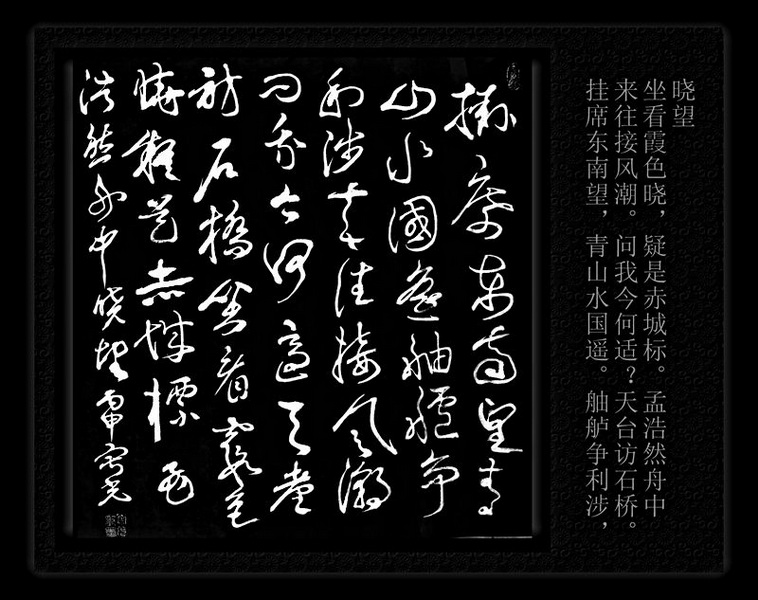 掛席東南望青
山水國遥舳艫争
利涉来往接風潮
问我今何適天臺
訪石橋坐看霞色
曉疑是赤城標孟
浩然舟中曉望
挂席东南望，青山水国遥。舳舻争利涉，
来往接风潮。问我今何适？天台访石桥。
坐看霞色晓，疑是赤城标。孟浩然舟中
晓望